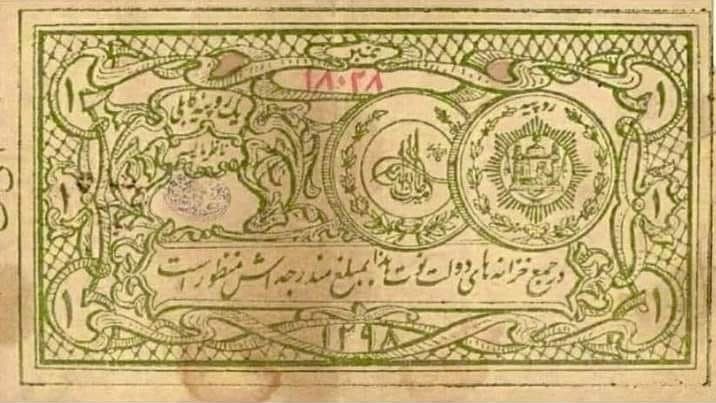 نمبر
۱۸۰۲۸
۱ ۱
یک روپیه کابلی
روپیه
۱ ۱
در جمع خزانه های دولت نوت هذا بمبلغ مندرجه اش منظور است
۱ ۱
۱۲۹۸